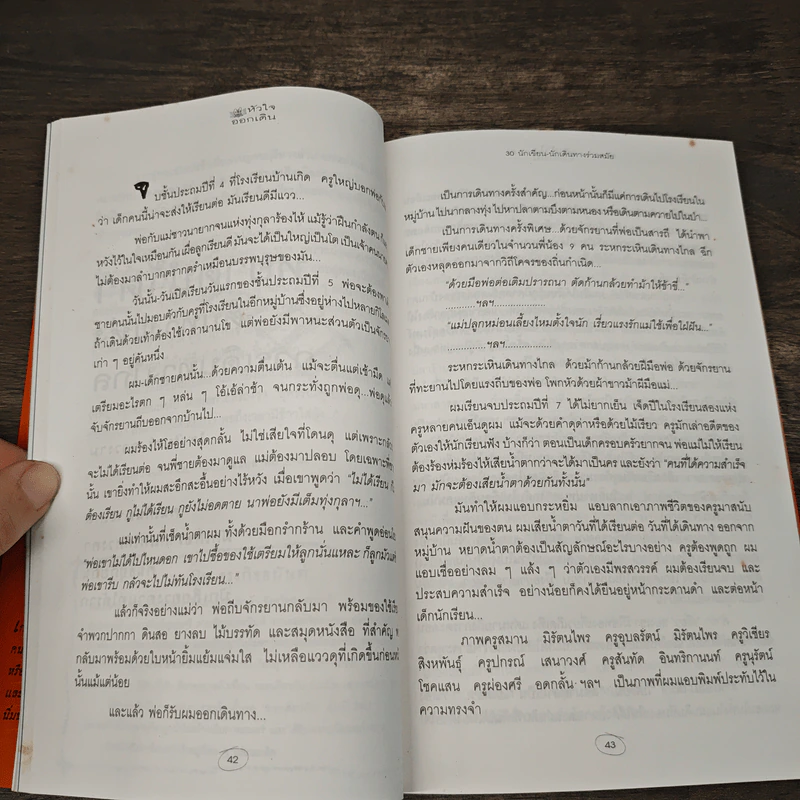 หัวใจ
ออกเดิน
จบชั้นประถมปีที่ 4 ที่โรงเรียนบ้านเกิด ครูใหญ่บอกพ่อกับ
ว่า เด็กคนนี้น่าจะส่งให้เรียนต่อ มันเรียนดีมีแวว...
พ่อกับแม่ชาวนายากจนแห่งทุ่งกุลาร้องไห้ แม้รู้ว่าฝืนกำลังตน ก็
หวังไว้ในใจเหมือนกัน เผื่อลูกเรียนดี มันจะได้เป็นใหญ่เป็นโต เป็นเจ้าคนนาย
ไม่ต้องมาลำบากตรากตรำเหมือนบรรพบุรุษของมัน...
วันนั้น-วันเปิดเรียนวันแรกของชั้นประถมปีที่ 5 พ่อจะต้องพา
ชายคนนั้นไปมอบตัวกับครูที่โรงเรียนในอีกหมู่บ้านซึ่งอยู่ห่างไปหลายกิโลเมตร
ถ้าเดินด้วยเท้าต้องใช้เวลานานโข แต่พ่อยังมีพาหนะส่วนตัวเป็นจักรยาน
เก่า ๆ อยู่คันหนึ่ง
ผม-เด็กชายคนนั้น...ด้วยความตื่นเต้น แม้จะตื่นแต่เช้ามืด แ
เตรียมอะไรตก ๆ หล่น ๆ โอ้เอ้ล่าช้า จนกระทั่งถูกพ่อดุ...พ่อดุแล้ว
จับจักรยานถีบออกจากบ้านไป...
ผมร้องไห้โฮอย่างสุดกลั้น ไม่ใช่เสียใจที่โดนดุ แต่เพราะกลัว
จะไม่ได้เรียนต่อ จนพี่ชายต้องมาดูแล แม่ต้องมาปลอบ โดยเฉพาะพี่ชาย
นั้น เขายิ่งทำให้ผมสะอึกสะอื้นอย่างไร้หวัง เมื่อเขาพูดว่า "ไม่ได้เรียน ก็
ต้องเรียน กูไม่ได้เรียน กูยังไม่อดตาย นาพ่อยังมีเต็มทุ่งกุลาฯ..."
แม่เท่านั้นที่เช็ดน้ำตาผม ทั้งด้วยมือกรำกร้าน และคำพูดอ่อนโยน
"พ่อเขาไม่ได้ไปไหนดอก เขาไปซื้อของใช้เตรียมให้ลูกนั่นแหละ ก็ลูกมัวแต่
พ่อเขารีบ กลัวจะไปไม่ทันโรงเรียน..."
แล้วก็จริงอย่างแม่ว่า พ่อถีบจักรยานกลับมา พร้อมของใช้เรียน
จำพวกปากกา ดินสอ ยางลบ ไม้บรรทัด และสมุดหนังสือ ที่สำคัญ พ
กลับมาพร้อมด้วยใบหน้ายิ้มแย้มแจ่มใส ไม่เหลือแววดุที่เกิดขึ้นก่อนหน้า
นั้นแม้แต่น้อย
และแล้ว พ่อก็รับผมออกเดินทาง...
42
30 นักเขียน-นักเดินทางร่วมสมัย
เป็นการเดินทางครั้งสำคัญ...ก่อนหน้านั้นก็มีแต่การเดินไปโรงเรียนใน
หมู่บ้าน ไปนากลางทุ่ง ไปหาปลาตามบึงตามหนอง หรือเดินตามควายไปในป่า...
เป็นการเดินทางครั้งพิเศษ...ด้วยจักรยานที่พ่อเป็นสารถี ได้นำพา
เด็กชายเพียงคนเดียวในจำนวนพี่น้อง 9 คน ระหกระเหินเดินทางไกล ฉีก
ตัวเองหลุดออกมาจากวิถีโคจรของถิ่นกำเนิด...
"ด้วยมือพ่อต่อเติมปรารถนา ตัดก้านกล้วยทำม้าให้ข้าขี่..."
............ฯลฯ..................
"แม่ปลูกหม่อนเลี้ยงไหมตั้งใจนัก เรี่ยวแรงรักแม่ใช้เพื่อใฝ่ฝัน..."
............ฯลฯ..................
ระหกระเหินเดินทางไกล ด้วยม้าก้านกล้วยฝีมือพ่อ ด้วยจักรยาน
ที่ทะยานไปโดยแรงถีบของพ่อ โพกหัวด้วยผ้าขาวม้าฝีมือแม่...
ผมเรียนจบประถมปีที่ 7 ได้ไม่ยากเย็น เจ็ดปีในโรงเรียนสองแห่ง
ครูหลายคนเอ็นดูผม แม้จะด้วยคำดุด่าหรือด้วยไม้เรียว ครูมักเล่าอดีตของ
ตัวเองให้นักเรียนฟัง บ้างก็ว่า ตอนเป็นเด็กครอบครัวยากจน พ่อแม่ไม่ให้เรียน
ต้องร้องห่มร้องไห้เสียน้ำตากว่าจะได้มาเป็นครู และยังว่า "คนที่ได้ความสำเร็จ
มา มักจะต้องเสียน้ำตาด้วยกันทั้งนั้น"
มันทำให้ผมแอบกระหยิ่ม แอบลากเอาภาพชีวิตของครูมาสนับ
สนุนความฝันของตน ผมเสียน้ำตาวันที่ได้เรียนต่อ วันที่ได้เดินทาง ออกจาก
หมู่บ้าน หยาดน้ำตาต้องเป็นสัญลักษณ์อะไรบางอย่าง ครูต้องพูดถูก ผม
แอบเชื่ออย่างลม ๆ แล้ง ๆ ว่าตัวเองมีพรสวรรค์ ผมต้องเรียนจบ และ
ประสบความสำเร็จ อย่างน้อยก็คงได้ยืนอยู่หน้ากระดานดำ และต่อหน้า
เด็กนักเรียน...
ภาพครูสมาน มิรัตนไพร ครูอุบลรัตน์ มิรัตนไพร ครูวิเชียร
สิงหพันธุ์ ครูปกรณ์ เสนาวงศ์ ครูสันทัด อินทริกานนท์ ครูนุรัตน์
โชคแสน ครูผ่องศรี อดกลั้น ฯลฯ เป็นภาพที่ผมแอบพิมพ์ประทับไว้ใน
ความทรงจำ
43